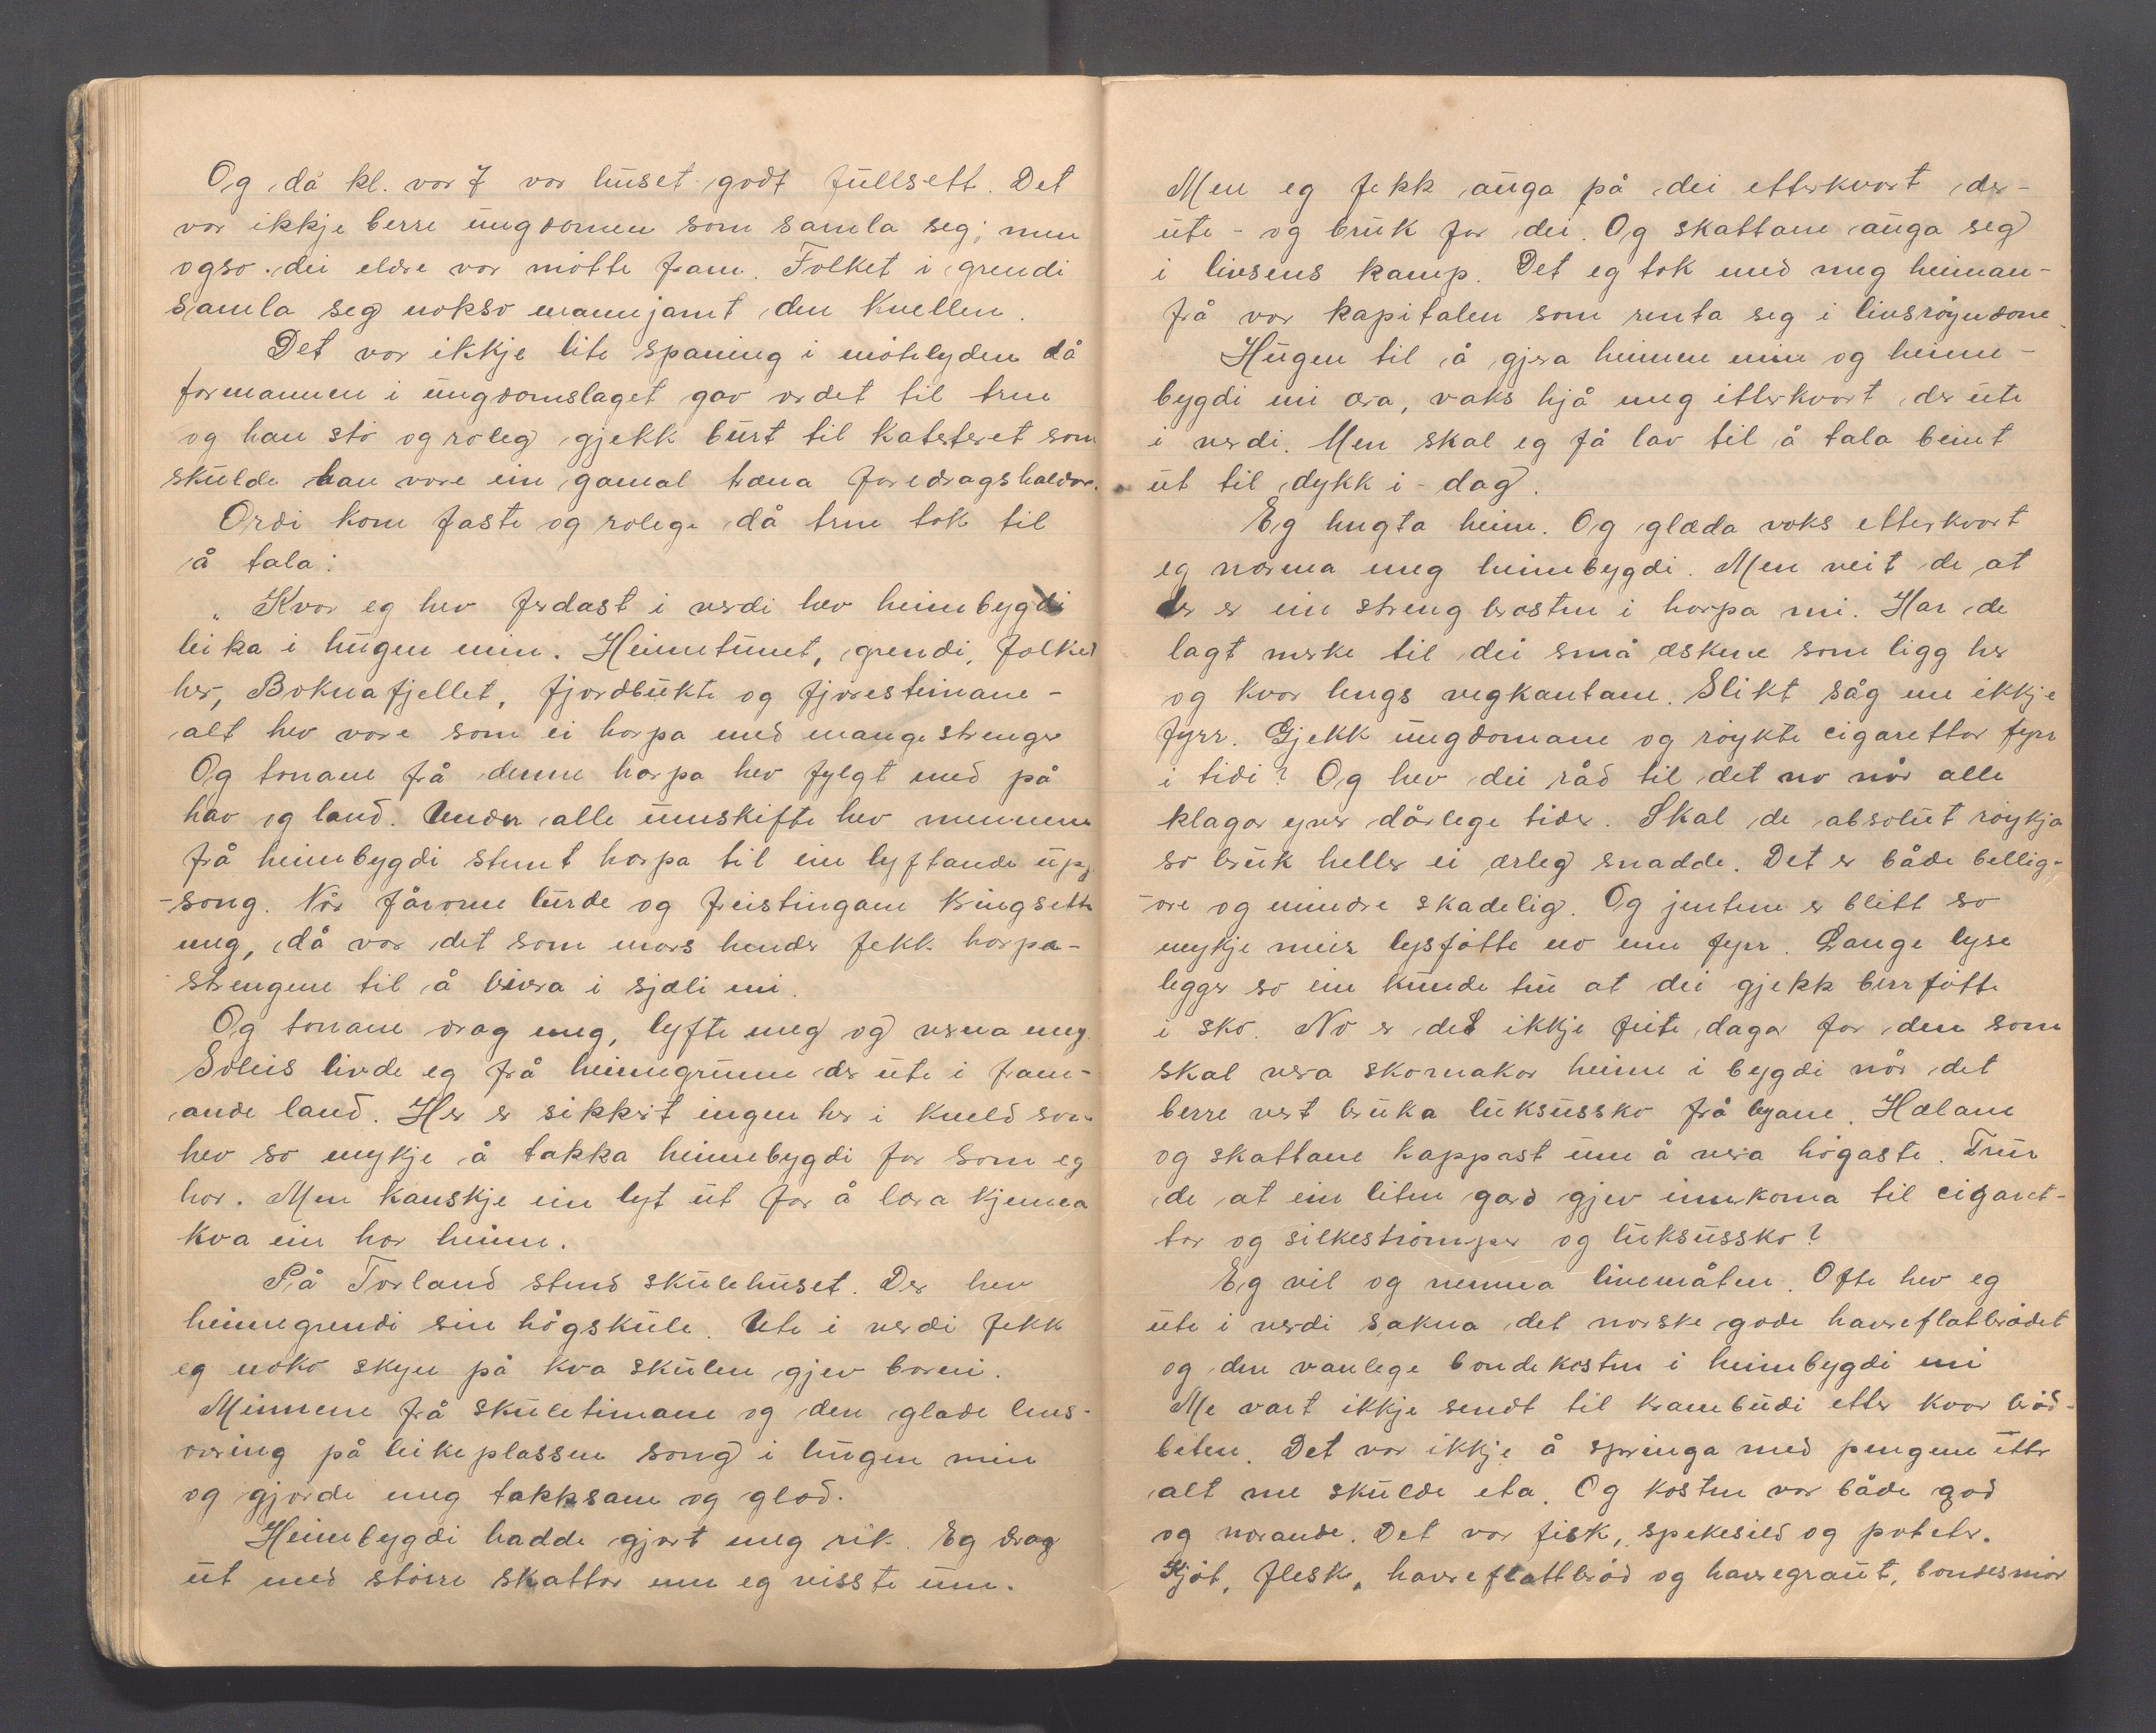 Og då kl. var 7 var huset godt fullsett. Det
var ikkje berre ungdomen som samla seg; men
ogso dei eldre var møtte fram. Folket i grendi
samla seg nokso mannjamt den kvellen.
Det var ikkje lite spaning i møtelyden då
formannen i ungdomslaget gav ordet til
og han stø og roleg gjekk burt til kateteret som
skulde han vore ein gamal træna foredragshaldar.
Ordi kom faste og rolege då tok til
å tala:
"Kvar eg hev ferdast i verdi hev heimbygdi
leika i hugen min. Heimetunet, grendi, folket
her, Boknafjellet, fjordbukti og fjøresteinane -
alt hev vore som ei harpa med mange strenger
Og tonane frå denne harpa hev fylgt med på
hav og land. Under alle umskifte hev minnene
frå heimbygdi stemt harpa til ein lyftande upp-
-song. Når fårorne lurde og freistingane kringsette
meg, då var det som mors hender fekk harpe-
strengene til å bivra i sjæli mi.
Og tonane drog meg, lyfte meg og verna meg.
Soleis livde eg frå heimegrunnen der ute i fram-
ande land. Her er sikkert ingen her i kveld som
hev so mykje å takka heimebygdi for som eg
har. Men kanskje ein lyt ut for å læra kjenna
kva ein har heime.
På Torland stend skulehuset. Der hev
heimegrendi sin høgskule. Ute i verdi fekk
eg noko skyn på kva skulen gjev borni.
Minnene frå skuletimane og den glade leus-
øving på leikeplassen song i hugen min
og gjorde meg takksam og glad.
Heimbygdi hadde gjort meg rik. Eg drog
ut med større skattar enn eg visste um.
Men eg fekk auga på dei etterkvart der-
ute - og bruk for dei. Og skattane auga seg
i livsens kamp. Det eg tok med meg heiman-
frå var kapitalen som renta seg i livsrøyndone.
Hugen til å gjera heimen min og heime-
bygdi mi æra, vaks hjå meg etterkvart der ute
i verdi. Men skal eg få lov til å tala beint
ut til dykk i-dag.
Eg lengta heim. Og glæda voks etterkvart
eg nærma meg heimbygdi. Men veit de at
der er ein streng brosten i harpa mi. Har de
lagt merke til dei små øskene som ligg her
og kvar langs vegkantane. Slikt såg me ikkje
fyrr. Gjekk ungdomane og røykte cigarettar fyrr
i tidi? Og hev dei råd til det no når alle
klagar yver dårlege tider. Skal de absolut røykja
so bruk heller ei ærleg snadde. Det er både billig-
are og mindre skadelig. Og jentene er blitt so
mykje meir lysføtte no enn fyrr. Lange lyse
legger so ein kunde tru at dei gjekk berrføtte
i sko. No er det ikkje feite dagar for den som
skal vera skomakar heime i bygdi når det
berre vert bruka luksussko frå byane. Hælane
og skattane kappast um å vera høgaste. Trur
de at ein liten gard gjev innkoma til cigaret-
tar og silkestrømper og luksussko?
Eg vil og nemna livemåten. Ofte hev eg
ute i verdi sakna det norske gode havreflatbrødet
og den vanlege bondekosten i heimbygdi mi
Me vart ikkje sendt til krambudi etter kvar brød-
beten. Det var ikkje å springa med pengene etter
alt me skulde eta. Og kosten var både god
og nørande. Det var fisk, spekesild og poteter.
Kjøt, flesk, havreflattbrød og havregraut, bondesmør